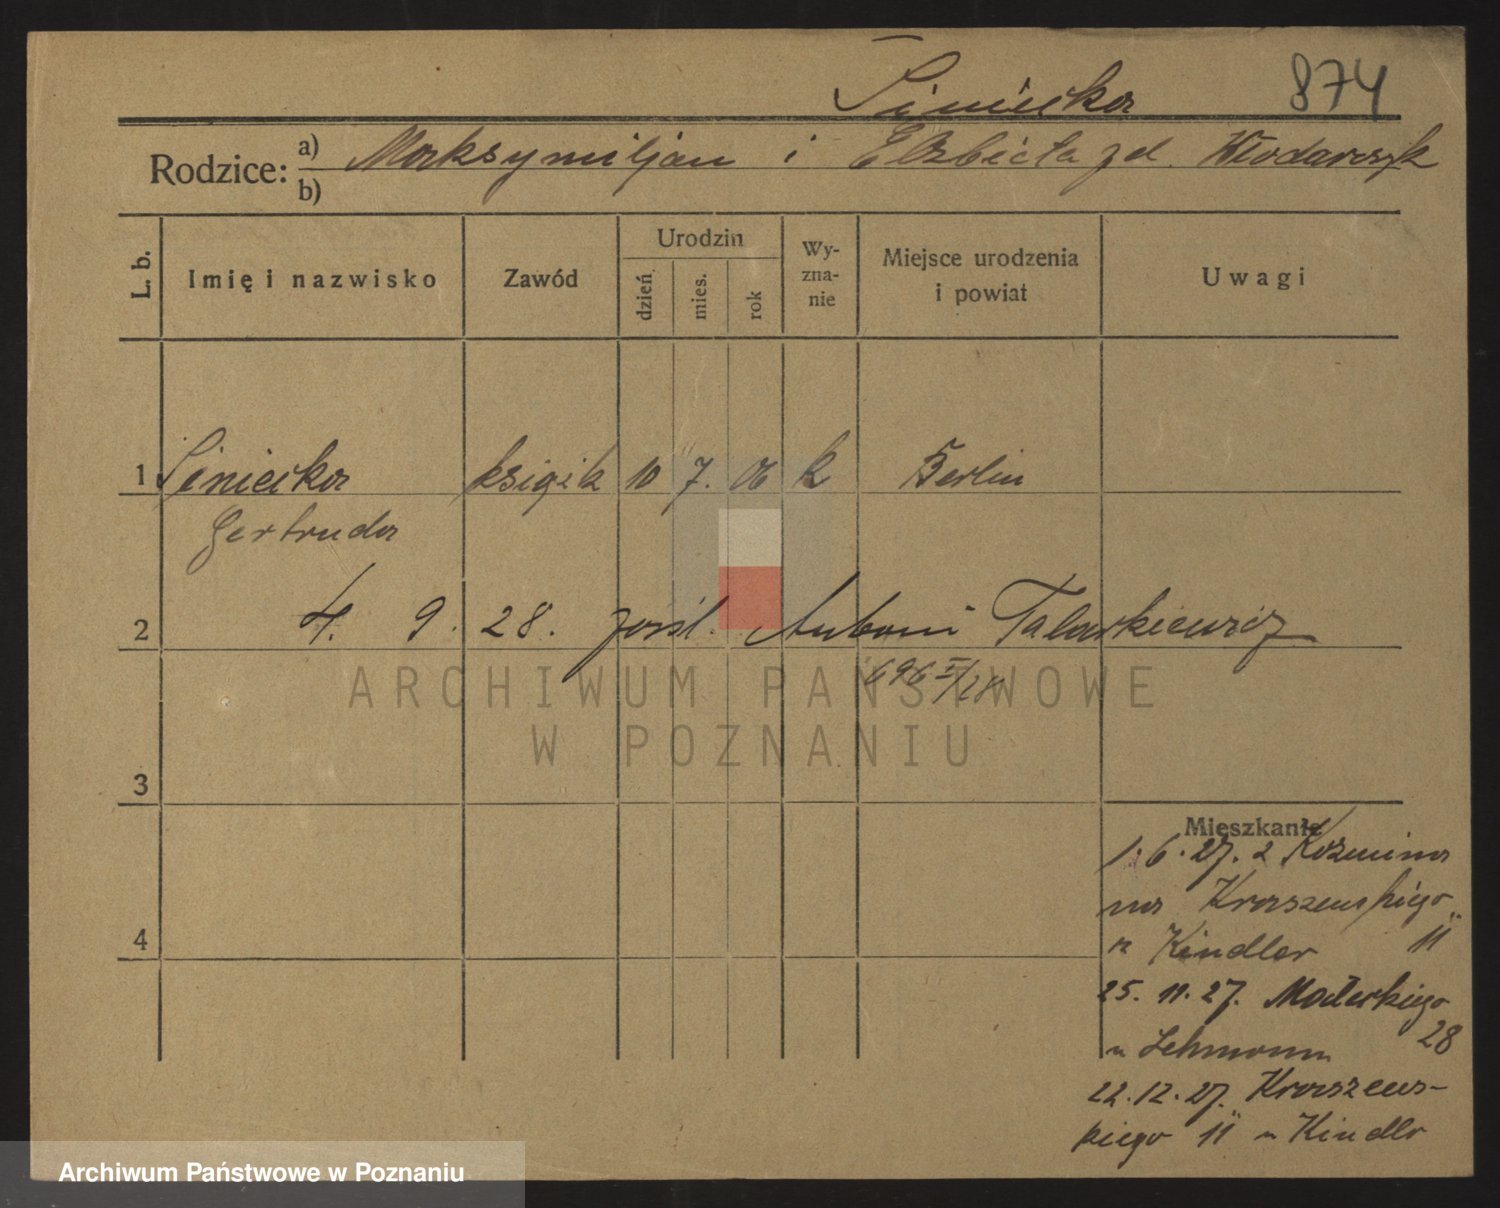 Siniecka 874
Rodzice: a) Maksymiljan i Elżbieta zd. Włodarczyk
b)
L. b. Imię i nazwisko Zawód Urodzin dzień mies. rok Wy-zna-nie Miejsce urodzenia i powiat Uwagi
1 Siniecka księg.k 10 7. 06 k Berlin
Gertruda
2 4. 9. 28. zaśl. Antoni Talarkiewicz
696 I/28
ARCHIWUM PAŃSTWOWE
W POZNANIU
3
Mieszkanie
1. 6. 27. z Koźmina
na Kraszewskiego
u Kindler 11
4
25. 11. 27. Małeckiego
28
u Lehmann
22. 12. 27. Kraszews-
kiego 11 u Kindlr
Archiwum Państwowe w Poznaniu